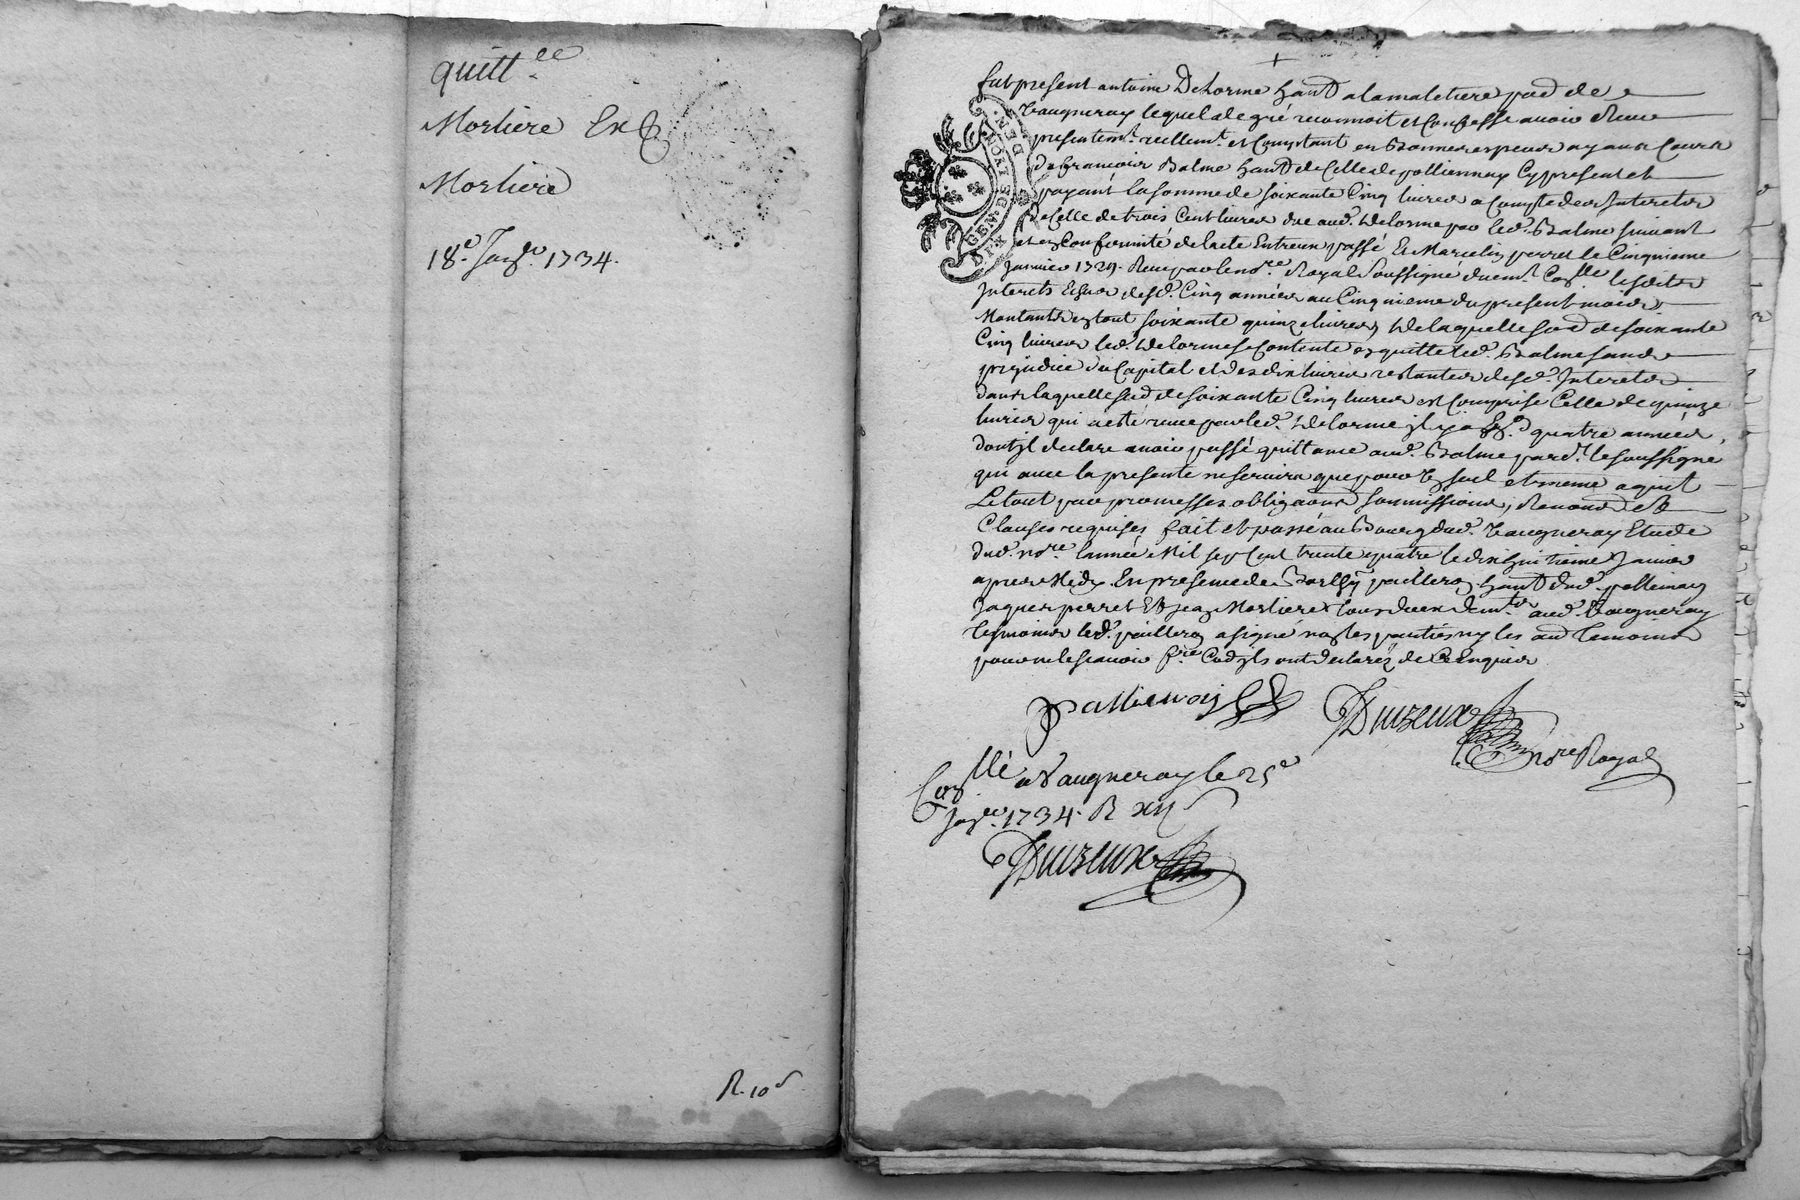 quitt.ce
Morliere Et
Morliere
18e. Janv. 1734.
R. 10s
+
fut present antoine Delorme habt a la maletiere pard de
Vaugneray lequel de gré reconnoit et Confesse avoir Receu
presentemt. reellemt. et Comptant en bonnes especes ayant Cours
de françois Balme habt de Celles de pollionnay Cy present et
payant la somme de soixante Cinq livres a Compte des Interets
de Celle de trois Cent livres due aud. Delorme par led. Balme suivant
et en Conformité de lacte Entreux passé Et Marcelin perret le Cinquieme
Janvier 1729. Receu par le nore. Royal soussigné duemt. Conllé lesdits
Interets Echus desd. Cinq années au Cinquieme du present mois
Montants en tout soixante quinze livres, De laquelle sod de soixante
Cinq livres led. Delorme se Contente en quitte led. Balme sans
prejudice du Capital et des dix livres restantes desd. Interets
dans laquelle sod de soixante Cinq livres est Comprise Celle de quinze
livres qui a esté receue par led. Delorme il y a quatre années,
dont il declare avoir passé quittance aud. Balme pard. le soussigné
qui avec la presente ne servira que pour Un seul et meme aquit
Le tout par promesses obligaons soumissions, Renonons Et
Clauses requises fait et passé au Bourg dud. Vaugneray Etude
dud. nore. lannée Mil sept Cent trente quatre le dix huitieme Janvier
apres Midy En presence de pailleron habt dud. pollionay
Jaques perret Et Jean Morliere tous deux demts. aud. Vaugneray
temoins led. pailleron a signé non les parties ny les aud temoins
pour ne le scavoir fre. Cod ils ont declarez de Ce Enquis
DEN GEN DE LYON DIX
Duzeux
nore Royal
Conllé a Vaugneray le 25e
Janv. 1734. R xii s
Duzeux